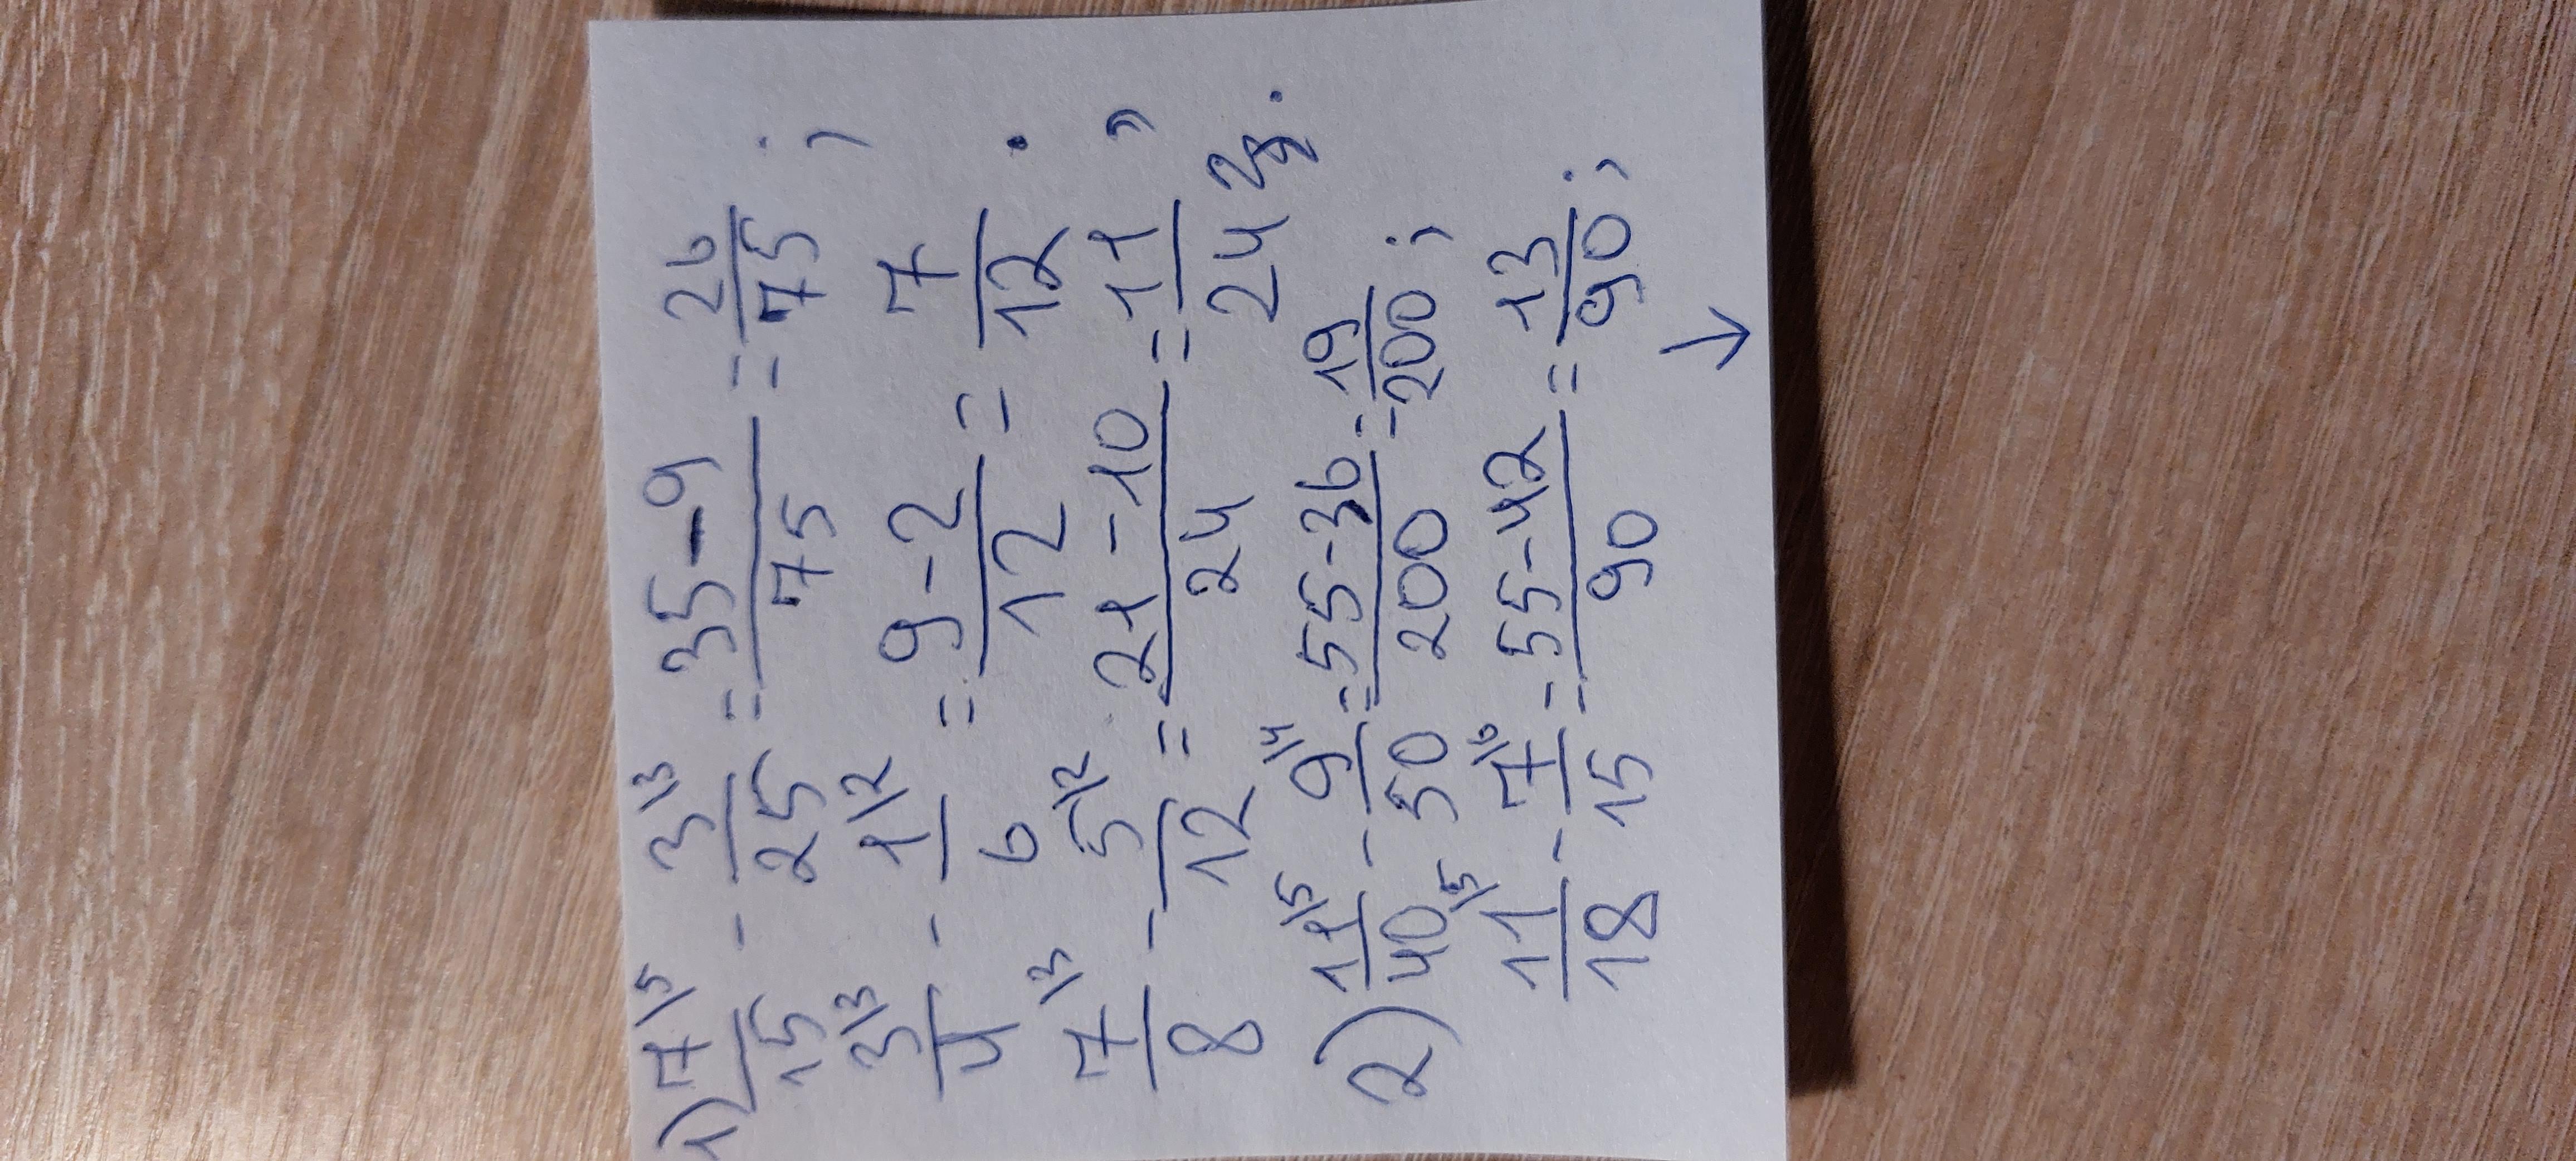 1) 7/15 \5 - 3/25 \3 = 35-9/75 = 26/75 ;
3/4 \3 - 1/6 \2 = 9-2/12 = 7/12 ;
7/8 \3 - 5/12 \2 = 21-10/24 = 11/24
2) 11/40 \5 - 9/50 \4 = 55-36/200 = 19/200 ;
11/18 \5 - 7/15 \6 = 55-42/90 = 13/90 ;
→